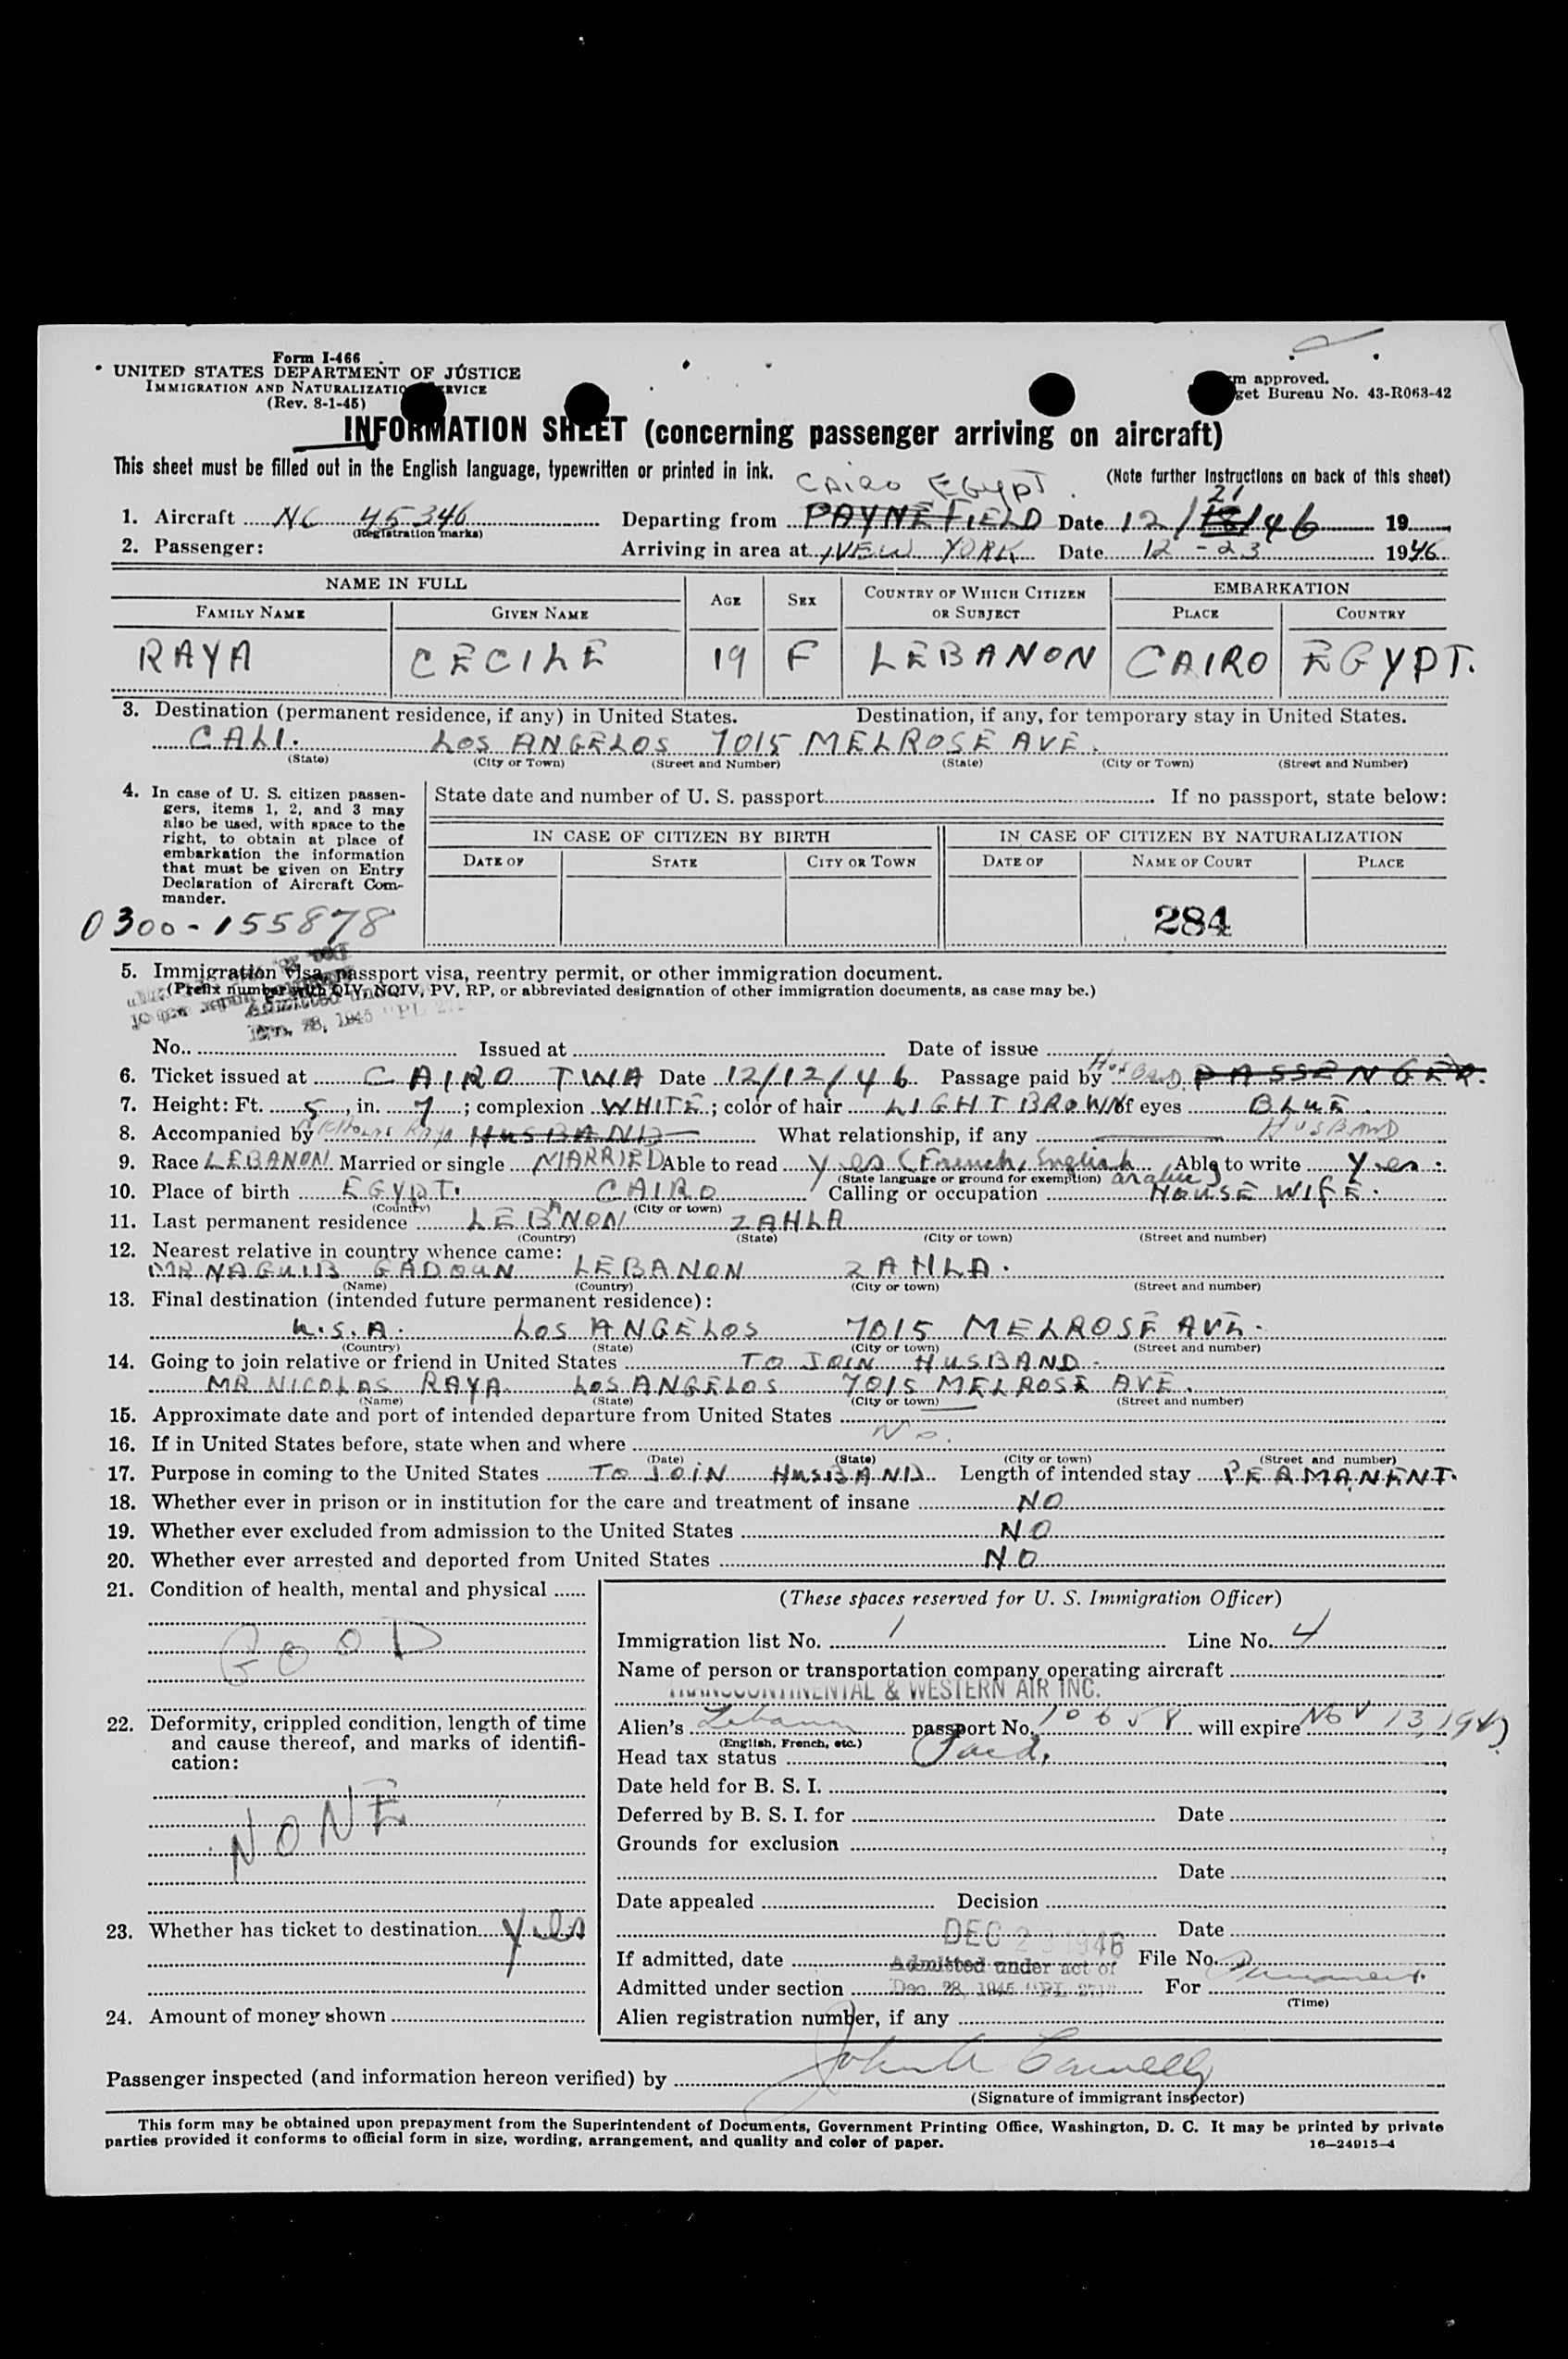 Form I-466
UNITED STATES DEPARTMENT OF JUSTICE
IMMIGRATION AND NATURALIZATION SERVICE
(Rev. 8-1-45)
approved.
Bureau No. 43-R063-42
INFORMATION SHEET (concerning passenger arriving on aircraft)
This sheet must be filled out in the English language, typewritten or printed in ink.
(Note further instructions on back of this sheet)
CAIRO EGYPT.
21
1. Aircraft NC 45346 Departing from PAYNEFIELD Date 12/18/46 19
(Registration marks)
2. Passenger: Arriving in area at NEW YORK Date 12-23 1946
NAME IN FULL AGE SEX COUNTRY OF WHICH CITIZEN OR SUBJECT EMBARKATION
FAMILY NAME GIVEN NAME PLACE COUNTRY
RAYA CECILE 19 F LEBANON CAIRO EGYPT.
3. Destination (permanent residence, if any) in United States. Destination, if any, for temporary stay in United States.
CALI. LOS ANGELOS 7015 MELROSE AVE.
(State) (City or Town) (Street and Number) (State) (City or Town) (Street and Number)
4. In case of U. S. citizen passengers, items 1, 2, and 3 may
also be used, with space to the
right, to obtain at place of
embarkation the information
that must be given on Entry
Declaration of Aircraft Commander.
State date and number of U. S. passport If no passport, state below:
IN CASE OF CITIZEN BY BIRTH IN CASE OF CITIZEN BY NATURALIZATION
DATE OF STATE CITY OR TOWN DATE OF NAME OF COURT PLACE
0300-155878
284
5. Immigration visa, passport visa, reentry permit, or other immigration document.
(Prefix number with QIV, NQIV, PV, RP, or abbreviated designation of other immigration documents, as case may be.)
No. Issued at Date of issue
6. Ticket issued at CAIRO TWA Date 12/12/46 Passage paid by HUSBAND PASSENGER.
7. Height: Ft. 5, in. 7; complexion WHITE; color of hair LIGHT BROWN of eyes BLUE.
8. Accompanied by Raya HUSBAND What relationship, if any HUSBAND
9. Race LEBANON. Married or single MARRIED Able to read yes (French, English arabic) Able to write yes.
(State language or ground for exemption)
10. Place of birth EGYPT. CAIRO Calling or occupation HOUSE WIFE.
(Country) (City or town)
11. Last permanent residence LEBANON ZAHLA
(Country) (State) (City or town) (Street and number)
12. Nearest relative in country whence came:
MR NAGUIB GADOUN LEBANON ZAHLA.
(Name) (Country) (City or town) (Street and number)
13. Final destination (intended future permanent residence):
U.S.A. LOS ANGELOS 7015 MELROSE AVE.
(Country) (State) (City or town) (Street and number)
14. Going to join relative or friend in United States TO JOIN HUSBAND.
MR NICOLAS RAYA. LOS ANGELOS 7015 MELROSE AVE.
(Name) (State) (City or town) (Street and number)
15. Approximate date and port of intended departure from United States
16. If in United States before, state when and where No.
(Date) (State) (City or town) (Street and number)
17. Purpose in coming to the United States TO JOIN HUSBAND. Length of intended stay PERMANENT.
18. Whether ever in prison or in institution for the care and treatment of insane NO
19. Whether ever excluded from admission to the United States NO
20. Whether ever arrested and deported from United States NO
21. Condition of health, mental and physical
GOOD
22. Deformity, crippled condition, length of time
and cause thereof, and marks of identification:
NONE
23. Whether has ticket to destination yes
24. Amount of money shown
(These spaces reserved for U. S. Immigration Officer)
Immigration list No. 1 Line No. 4
Name of person or transportation company operating aircraft
TRANSCONTINENTAL & WESTERN AIR INC.
Alien's Lebanon passport No. 10658 will expire Nov 13, 1947
(English, French, etc.)
Head tax status Paid.
Date held for B. S. I.
Deferred by B. S. I. for Date
Grounds for exclusion
Date
Date appealed Decision
DEC 23 1946 Date
If admitted, date Admitted under act of File No.
Admitted under section Dec. 28, 1945 "PL 271" For Permanent.
(Time)
Alien registration number, if any
Passenger inspected (and information hereon verified) by
(Signature of immigrant inspector)
This form may be obtained upon prepayment from the Superintendent of Documents, Government Printing Office, Washington, D. C. It may be printed by private
parties provided it conforms to official form in size, wording, arrangement, and quality and color of paper.
16—24915-4